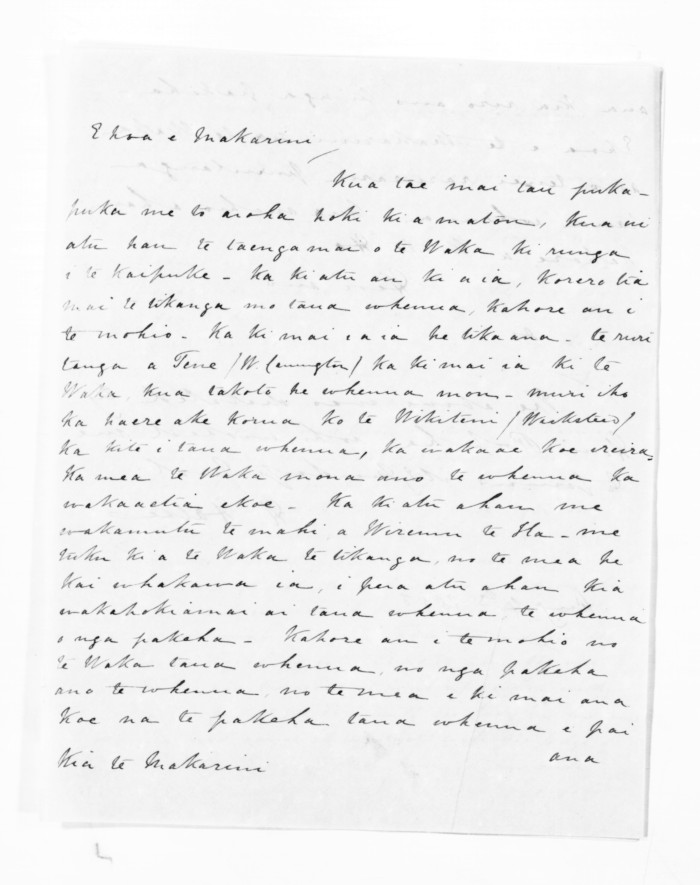 E hoa e Makarini
Kua tae mai tau puka-
puka me to aroha hoki ki a matou, kua ui
atu hau te taengamai o te Waka ki runga
i te Kaipuke - Ka ki atu au ki a ia, korerotia
mai te tikanga mo taua whenua, kahore au i
te mohio - Ka ki mai a ia he tika ana - te ruri
tanga a Tene / W. / Ka ki mai ia ki te
Waka, kua takoto he whenua mou - muri iho
ka haere ake korua ko te Wikitini / Wicksteed /
ka kite i taua whenua, ka wakaae koe ireira,
Ka mea te Waka mona ano te whenua ka
wakaaetia ekoe - Ka ki atu ahau me
wakamutu te mahi a Wiremu te Ha - me
tuku ki a te Waka te tikanga, no te mea he
kai whakawa ia, i pera atu ahau kia
wakahokiamai ai taua whenua te whenua
o nga pakeha - Kahore au i te mohio no
te Waka taua whenua, no nga pakeha
ano te whenua, no te mea e ki mai ana
koe na te pakeha taua whenua e pai
ana
Kia te Makarini